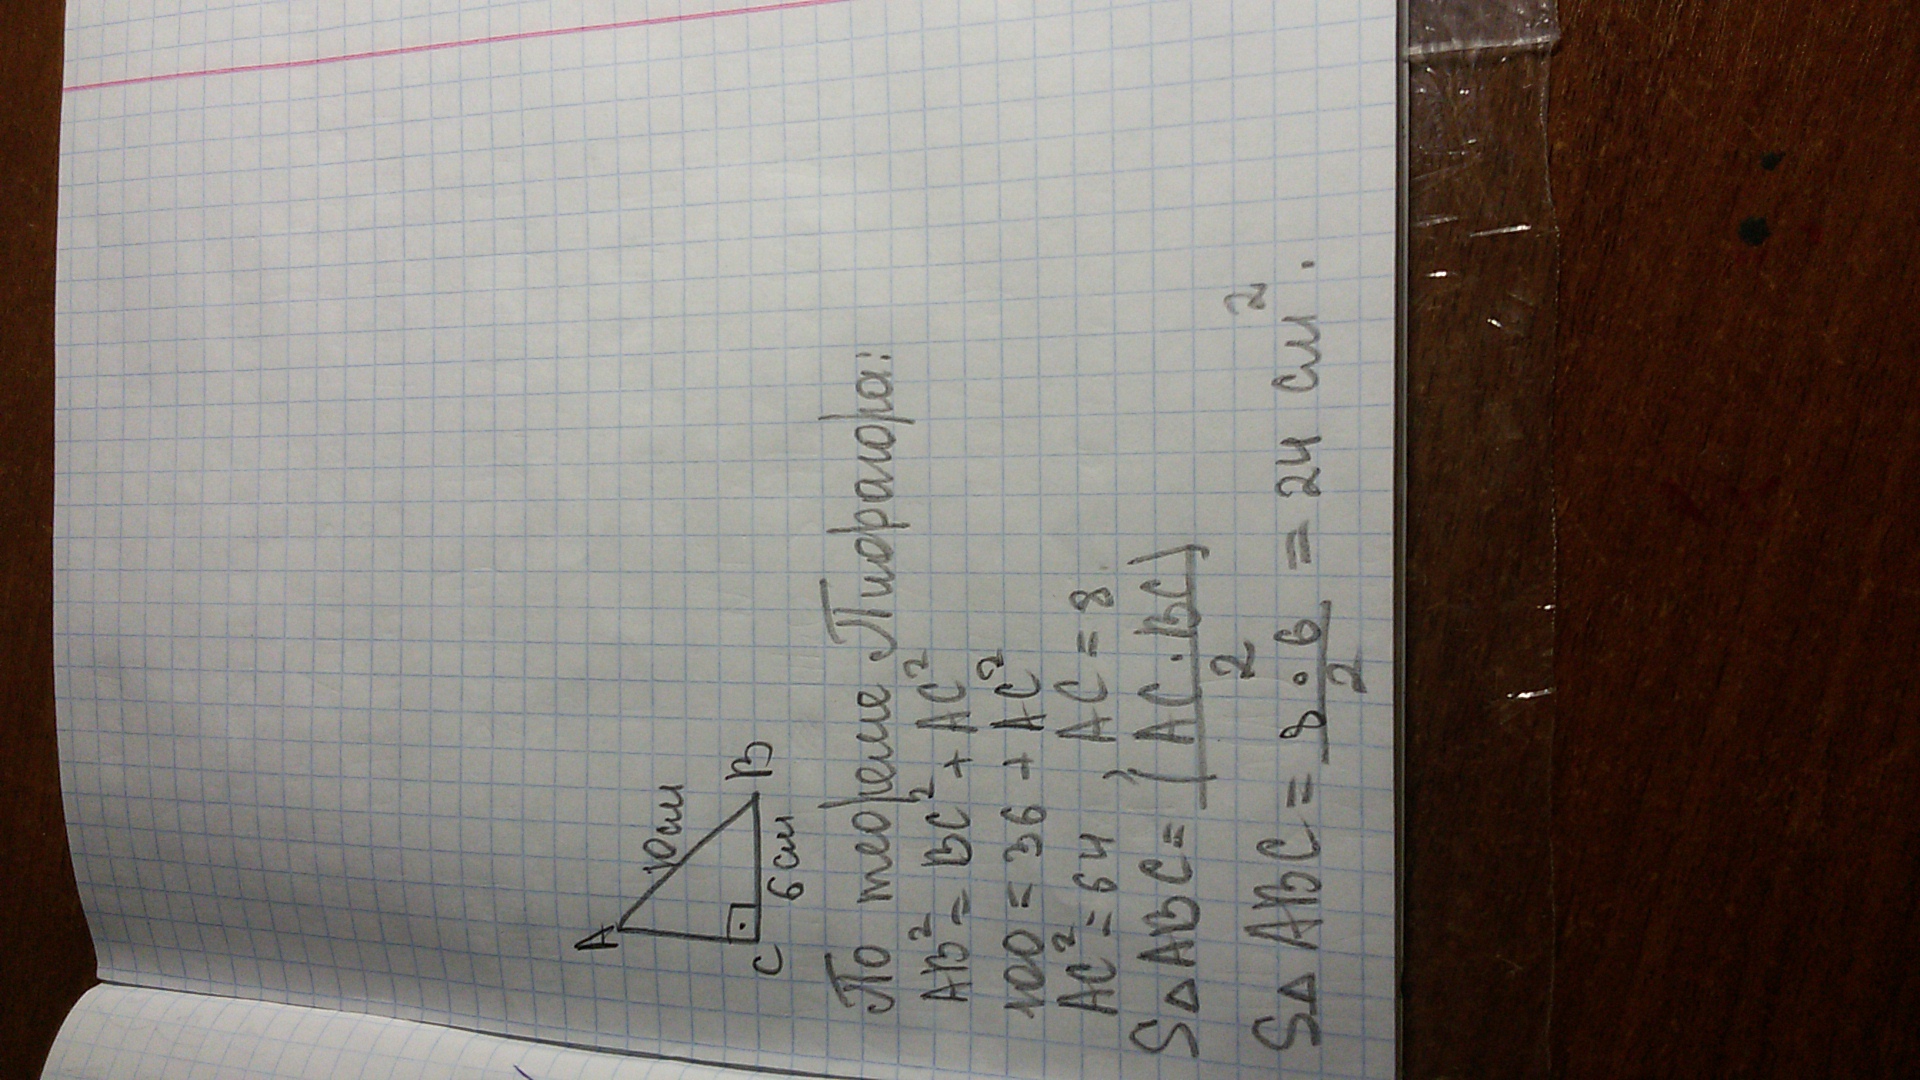 A
10см
C
B
6см
По теореме Пифагора:
AB² = BC² + AC²
100 = 36 + AC²
AC² = 64 ; AC = 8.
S△ABC = (AC · BC)
2
S△ABC = 8 · 6 = 24 см².
2